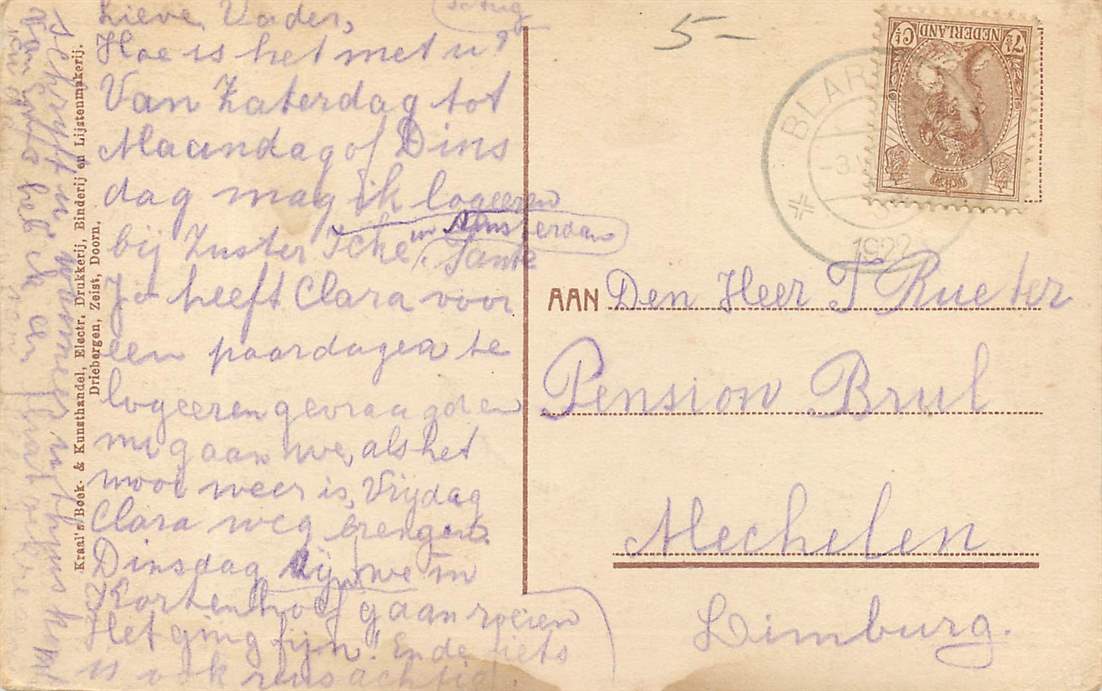 Lieve Vader,
Hoe is het met u?
Van Zaterdag tot
Maandag of Dins
dag mag ik logeeren
in Amsterdam
bij Zuster Icke. Tante
Jo heeft Clara voor
een paar dagen te
logeeren gevraagd en
nu gaan we, als het
mooi weer is, Vrijdag
Clara weg brengen.
Dinsdag zijn we in
Kortenhoef gaan roeien
Het ging fijn! En de fiets
is ook reusachtig.
schrijft u wanneer u thuis komt
van
heb ik een
Kraal's Boek- & Kunsthandel, Electr. Drukkerij, Binderij en Lijstenmakerij.
Driebergen, Zeist, Doorn.
5-
NEDERLAND
7½ Ct
BLAR
-3.V
1922
AAN Den Heer J Rueter
Pension Brul
Mechelen
Limburg.